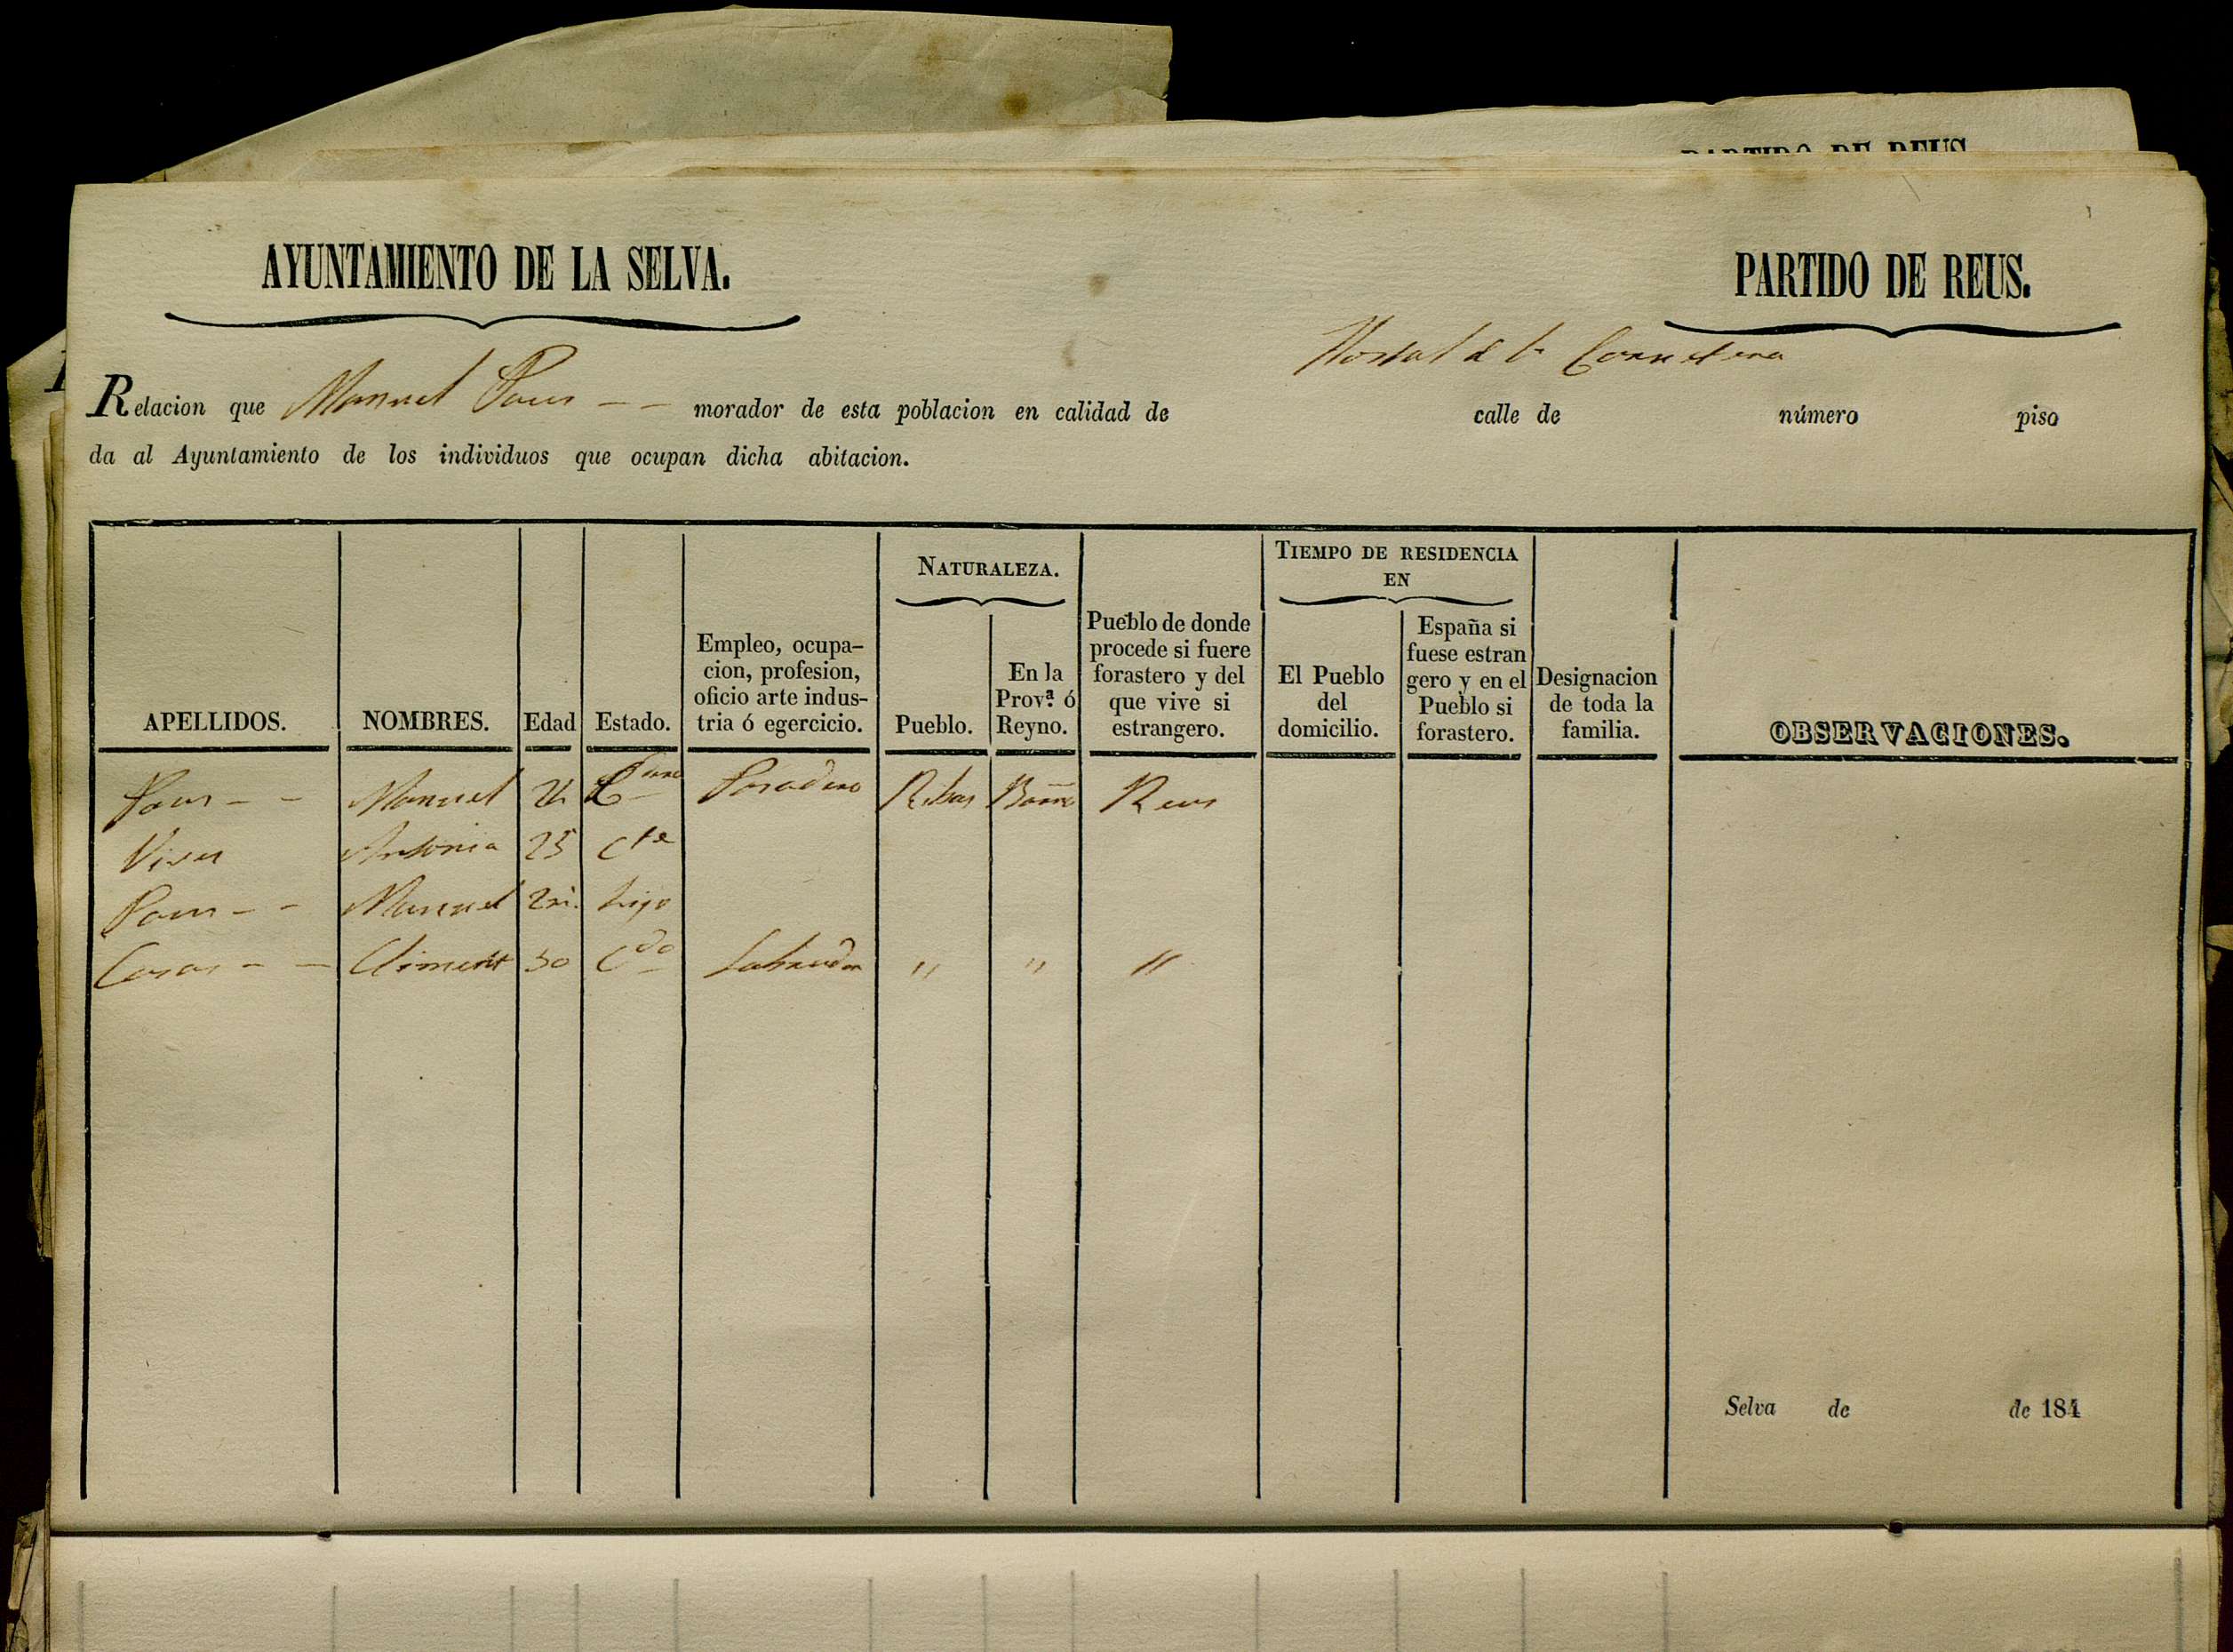 PARTIDO DE REUS
AYUNTAMIENTO DE LA SELVA.
PARTIDO DE REUS.
Hostal de la Carretera
Relacion que Manuel Pous - - morador de esta poblacion en calidad de calle de número piso
da al Ayuntamiento de los individuos que ocupan dicha abitacion.
APELLIDOS.
NOMBRES.
Edad
Estado.
Empleo, ocupa-
cion, profesion,
oficio arte indus-
tria ó egercicio.
NATURALEZA.
Pueblo.
En la
Provª. ó
Reyno.
Pueblo de donde
procede si fuere
forastero y del
que vive si
estrangero.
TIEMPO DE RESIDENCIA
EN
El Pueblo
del
domicilio.
España si
fuese estran
gero y en el
Pueblo si
forastero.
Designacion
de toda la
familia.
OBSERVACIONES.
Pous - - Manuel Posadero Ribas Reus
Antonia 25 Cda
Pous - - Manuel hijo
Casas - - Climent 50 Cdo Labrador " " "
Selva de de 184